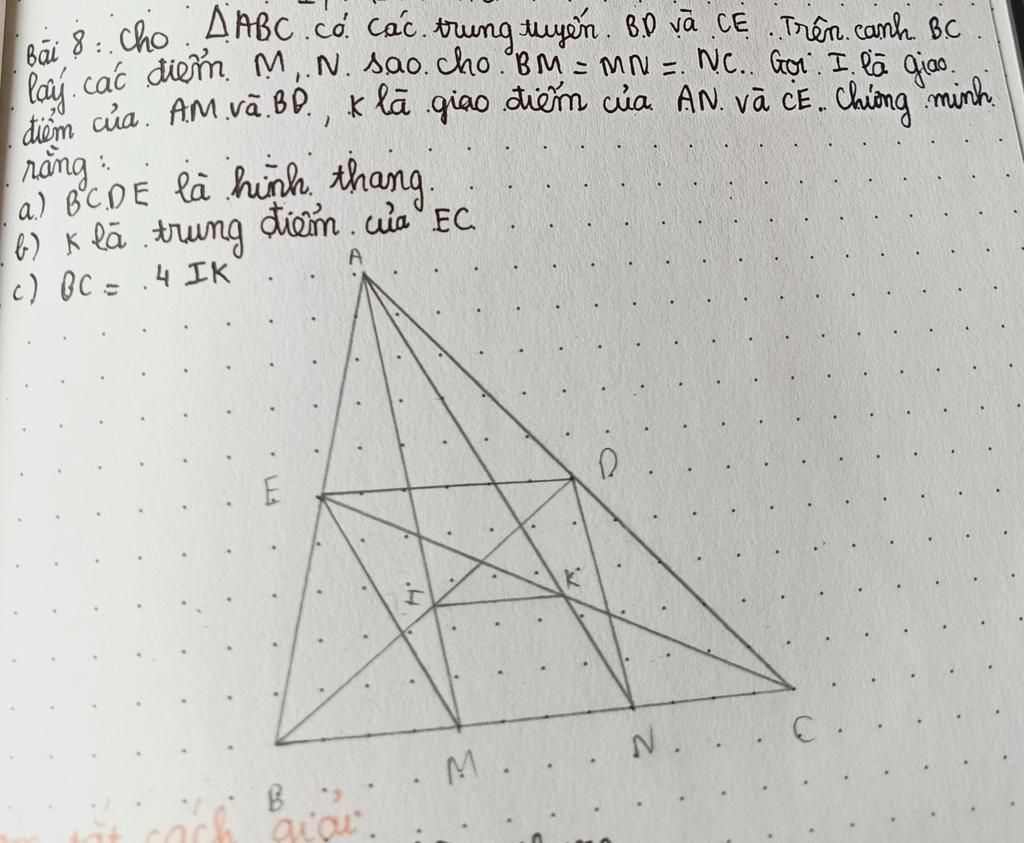 Bài 8: Cho ΔABC có các trung tuyến BD và CE. Trên cạnh BC
lấy các điểm M, N sao cho BM = MN = NC. Gọi I là giao
điểm của AM và BD, K là giao điểm của AN và CE. Chứng minh
rằng:
a) BCDE là hình thang
b) K là trung điểm của EC
c) BC = 4 IK
A
E
D
I
K
B
M
N
C
tắt cách giải